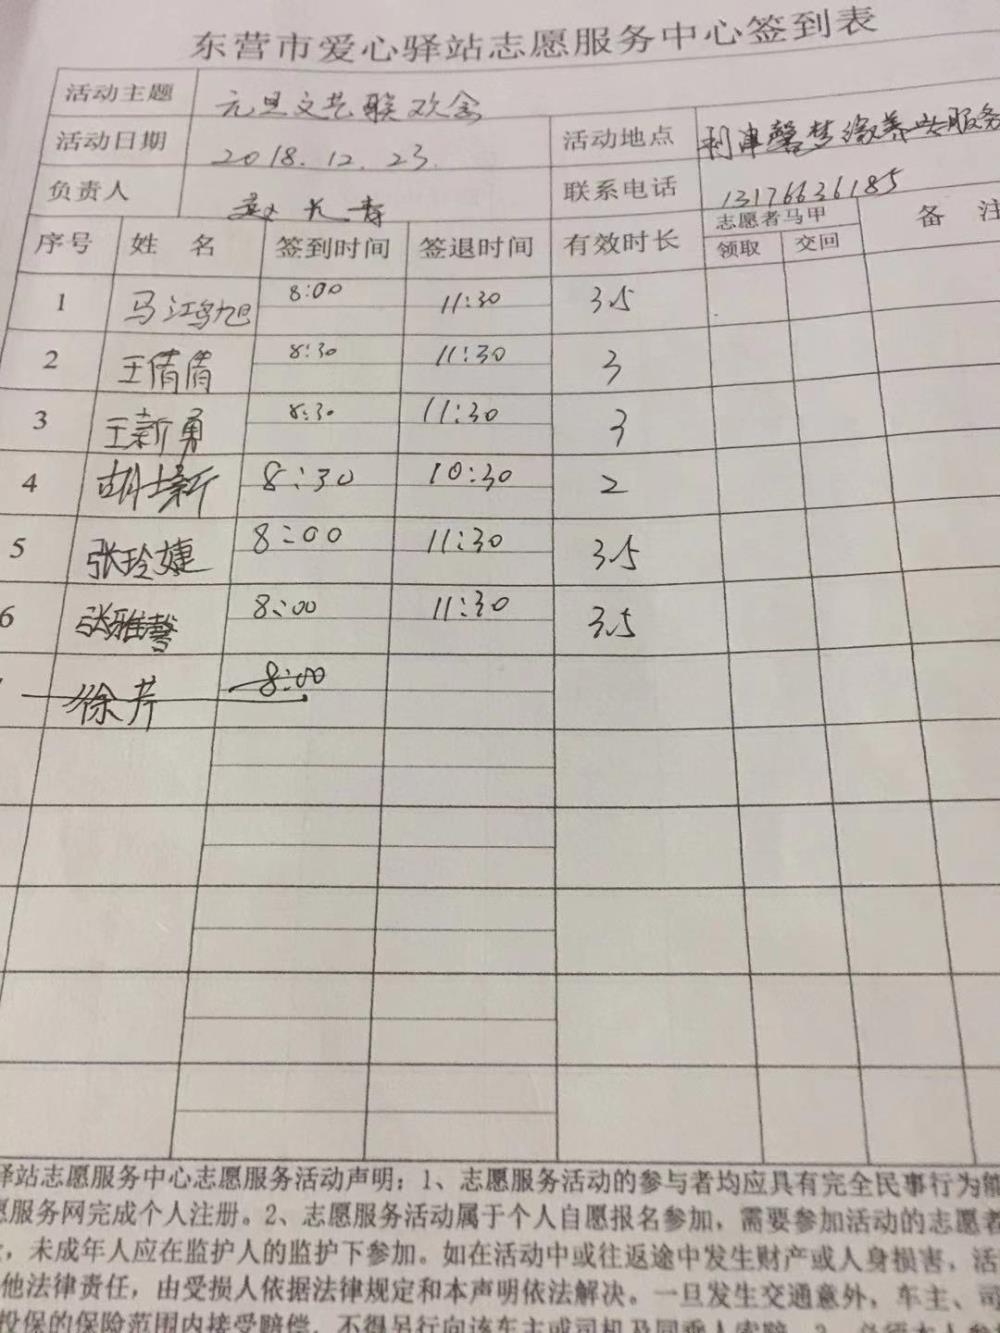 东营市爱心驿站志愿服务中心签到表
活动主题 元旦文艺联欢会
活动日期 2018.12.23. 活动地点 利津馨梦缘养 服务
负责人 赵长春 联系电话 13176636185
序号 姓 名 签到时间 签退时间 有效时长 志愿者马甲 备 注
领取 交回
1 马鸿旭 8:00 11:30 3.5
2 王倩倩 8:30 11:30 3
3 王新勇 8:30 11:30 3
4 胡新 8:30 10:30 2
5 张玲婕 8:00 11:30 3.5
6 张雅馨 8:00 11:30 3.5
徐芹 8:00
驿站志愿服务中心志愿服务活动声明：1、志愿服务活动的参与者均应具有完全民事行为能
愿服务网完成个人注册。2、志愿服务活动属于个人自愿报名参加，需要参加活动的志愿者
，未成年人应在监护人的监护下参加。如在活动中或往返途中发生财产或人身损害，活
他法律责任，由受损人依据法律规定和本声明依法解决。一旦发生交通意外，车主、司
投保的保险范围内接受赔偿，不得另行向该车主或司机及同乘人索赔。3、必须本人参